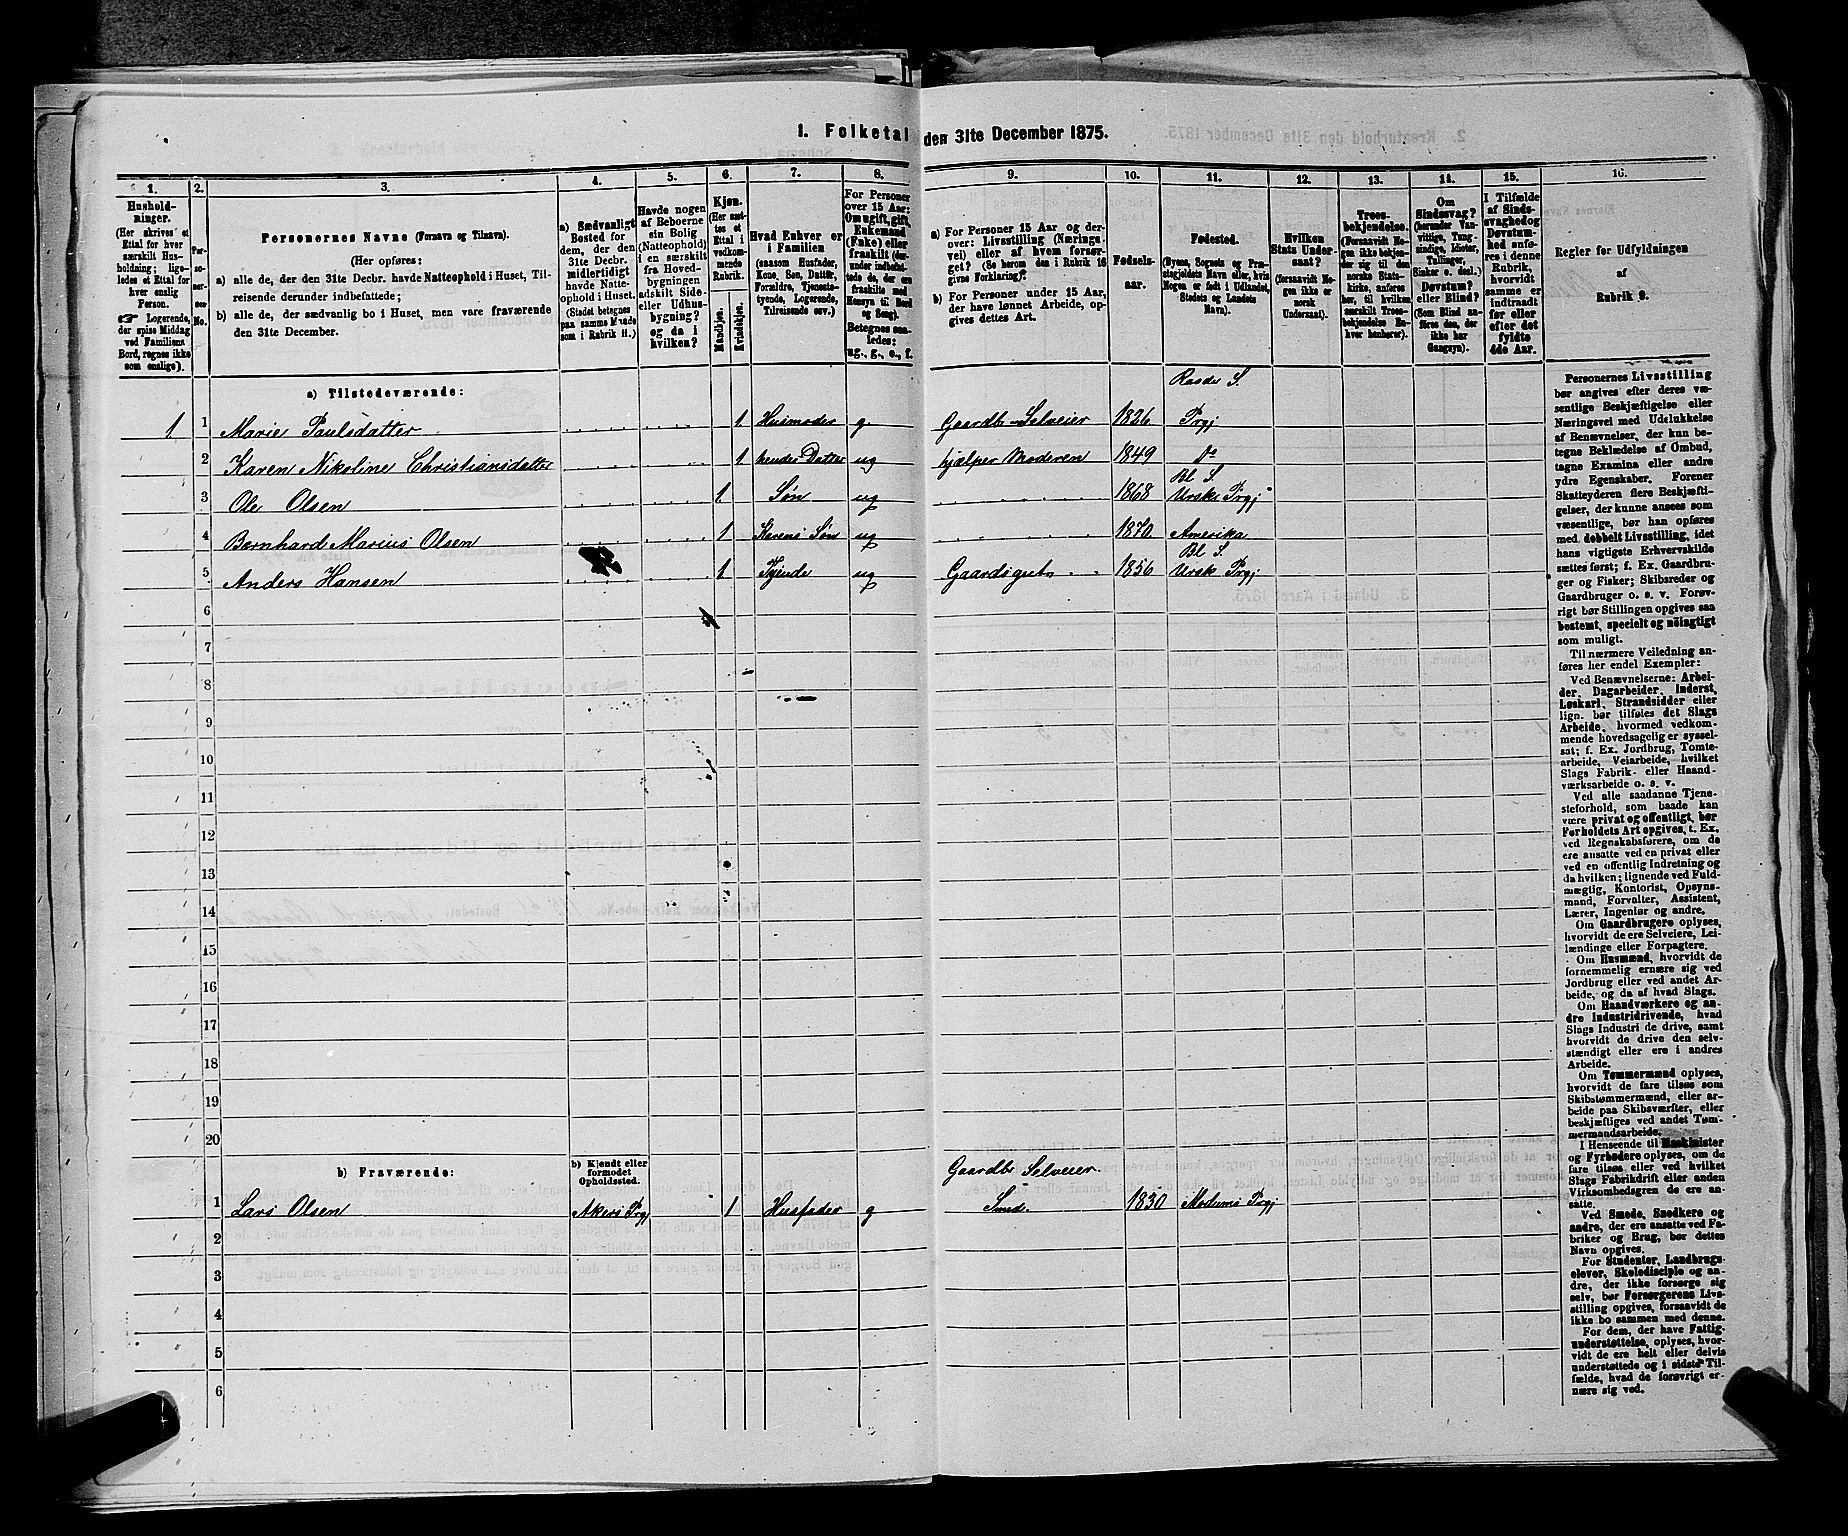 1. Folketal den 31te December 1875.
1. 2. 3. 4. 5. 6. 7. 8. 9. 10. 11. 12. 13. 14. 15. 16.
Hushold-
ninger.
(Her skrives et
Ettal for hver
særskilt Hus-
holdning; lige-
ledes et Ettal for
hver enslig
Person.
☞ Logerende,
der spise Middag
ved Familiens
Bord, regnes ikke
som enslige).
Per-
so-
ner-
nes
No.
Personernes Navne (Fornavn og Tilnavn).
(Her opføres:
a) alle de, der den 31te Decbr. havde Natteophold i Huset, Til-
reisende derunder indbefattede;
b) alle de, der sædvanlig bo i Huset, men vare fraværende
den 31te December.
a) Sædvanligt
Bosted for
dem, der den
31te Decbr.
midlertidigt
havde Natte-
ophold i Huset.
(Stedet betegnes
paa samme Maade
som i Rubrik 11.)
Havde nogen
af Beboerne
sin Bolig
(Natteophold)
i en særskilt
fra Hoved-
bygningen
adskilt Side-
eller Udhus-
bygning?
og da i
hvilken?
Kjøn.
(Her sæt-
tes et
Ettal i
vedkom-
mende
Rubrik.
Mandkjøn.
Kvindekjøn.
Hvad Enhver er
i Familien
(saasom Husfader,
Kone, Søn, Datter,
Forældre, Tjeneste-
tyende, Logerende,
Tilreisende osv.)
For Personer
over 15 Aar:
Om ugift, gift,
Enkemand
(Enke) eller
fraskilt (der-
under indbefat-
tede de, der ere
fraskilte med
Hensyn til Bord
og Seng).
Betegnes saa-
ledes:
ug., g., e., f.
a) For Personer 15 Aar og der-
over: Livsstilling (Nærings-
vei) eller af hvem forsør-
get? (Se herom den i Rubrik 16
givne Forklaring).
b) For Personer under 15 Aar,
der have lønnet Arbeide, op-
gives dettes Art.
Fødsels-
aar.
Fødested.
(Byens, Sognets og Præ-
stegjeldets Navn eller, hvis
Nogen er født i Udlandet,
Stedets og Landets
Navn).
Hvilken
Stats Under-
saat?
(forsaavidt No-
gen ikke er
norsk
Undersaat).
Troes-
bekjendelse.
(Forsaavidt No-
gen ikke bekjen-
der sig til den
norske Stats-
kirke, anføres
her, til hvilken
særskilt Troes-
bekjendelse En-
hver henhører).
Om
Sindssvag?
(herunder Van-
vittige, Tung-
sindige, Idioter,
Tullinger,
Sinker o. desl.)
Døvstum?
eller Blind?
(Som Blind an-
føres den, der
ikke har
Gangsyn).
I Tilfælde
af Sinds-
svaghed og
Døvstum-
hed anfø-
res i denne
Rubrik,
hvorvidt
samme er
indtraadt
før eller
efter det
fyldte
4de Aar.
Regler for Udfyldningen
af
Rubrik 9.
a) Tilstedeværende:
Raade S.
1 1 Marie Paulsdatter 1 Husmoder g. Gaardb Selveier 1826 Prgj
2 Karen Nikoline Christiansdatter 1 hendes Datter ug hjælper Moderen 1849 Do
Bl S.
3 Ole Olsen 1 Søn ug 1868 Urske Prgj
4 Bernhard Marius Olsen 1 Karens Søn ug 1870 Amerika
Bl S.
5 Anders Hansen 1 Tjende ug Gaardsgut 1856 Ursk Prgj
6
7
8
9
10
11
12
13
14
15
16
17
18
19
20
b) Fraværende:
b) Kjendt eller
formodet
Opholdssted.
Gaardbr Selveier.
1 Lars Olsen Akers Prgj 1 Husfader g Smed. 1830 Prgj
2
3
4
5
6
Personernes Livsstilling
bør angives efter deres væ-
sentlige Beskjæftigelse eller
Næringsvei med Udelukkelse
af Benævnelser, der kun be-
tegne Beklædelse af Ombud,
tagne Examina eller andre
ydre Egenskaber. Forener
Skatteyderen flere Beskjæfti-
gelser, der kunne ansees som
væsentlige, bør han opføres
med dobbelt Livsstilling, idet
hans vigtigste Erhvervskilde
sættes først; f. Ex. Gaardbru-
ger og Fisker; Skibsreder og
Gaardbruger o. s. v. Forøv-
rigt bør Stillingen opgives saa
bestemt, specielt og nöiagtigt
som muligt.
Til nærmere Veiledning an-
føres her endel Exempler:
Ved Benævnelserne: Arbei-
der, Dagarbeider, Inderst,
Løskarl, Strandsidder eller
lign. bør tilføies det Slags
Arbeide, hvormed vedkom-
mende hovedsagelig er syssel-
sat; f. Ex. Jordbrug, Tomte-
arbeide, Veiarbeide, hvilket
Slags Fabrik- eller Haand-
værksarbeide o. s. v.
Ved alle saadanne Tjene-
steforhold, som baade kan
være privat og offentligt, bør
Forholdets Art opgives, t. Ex.
ved Regnskabsførere, om de
ere ansatte ved en privat eller
ved en offentlig Indretning og
da hvilken; lignende ved Fuld-
mægtig, Kontorist, Opsyns-
mand, Forvalter, Assistent,
Lærer, Ingeniør og andre.
Om Gaardbrugere oplyses,
hvorvidt de ere Selveiere, Lei-
lændinge eller Forpagtere.
Om Husmænd, hvorvidt de
fornemmelig ernære sig ved
Jordbrug eller ved andet Ar-
beide, og da af hvad Slags.
Om Haandværkere og an-
dre Industridrivende, hvad
Slags Industri de drive, samt
hvorvidt de drive den selv-
stændigt eller ere i andres
Arbeide.
Om Tømmermænd oplyses,
hvorvidt de fare tilsøs som
Skibstømmermænd, eller ar-
beide paa Skibsværfter, eller
beskjæftiges ved andet Tøm-
mermandsarbeide.
I Henseende til Maskinister
og Fyrbødere oplyses, om de
fare tilsøs eller ved hvilket
Slags Fabrikdrift eller anden
Virksomhedsgren de ere an-
satte.
Ved Smede, Snedkere og
andre, der ere ansatte ved Fa-
briker og Brug, bør dettes
Navn opgives.
For Studenter, Landbrugs-
elever, Skoledisciple og an-
dre, der ikke forsørge sig
selv, bør Forsørgerens Livs-
stilling opgives, forsaavidt de
ikke bo sammen med denne.
For dem, der have Fattig-
understøttelse, oplyses, hvor-
vidt de ere helt eller delvis
understøttede og i sidste Til-
fælde, hvad de forøvrigt er-
nære sig ved.